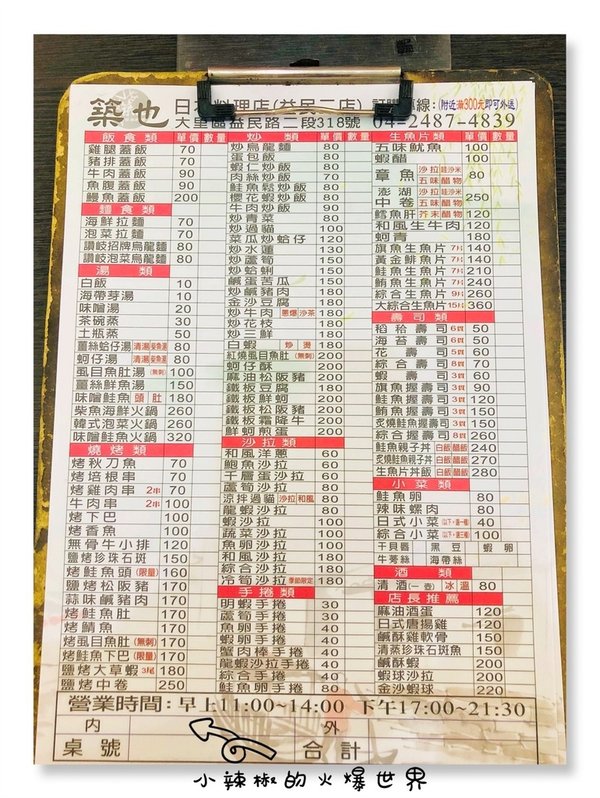 築也 日本料理店(益民二店) 訂購專線:(附近滿300元即可外送)
大里區益民路二段318號 04-2487-4839
飯食類 單價 數量
雞腿蓋飯 70
豬排蓋飯 70
牛肉蓋飯 90
魚腹蓋飯 90
鰻魚蓋飯 200
麵食類
海鮮拉麵 70
泡菜拉麵 70
讚岐招牌烏龍麵 80
讚岐泡菜烏龍麵 80
湯類
白飯 10
海帶芽湯 10
味噌湯 20
茶碗蒸 30
土瓶蒸 50
薑絲蛤仔湯 清湯/薑絲湯 80
蚵仔湯 清湯/薑絲湯 80
虱目魚肚湯(無刺) 100
薑絲鮮魚湯 150
味噌鮭魚 頭 肚 180
柴魚海鮮火鍋 260
韓式泡菜火鍋 260
味噌鮭魚火鍋 320
燒烤類
烤秋刀魚 70
烤培根串 70
烤雞肉串 2串 70
牛肉串 2串 100
烤下巴 100
烤香魚 100
無骨牛小排 120
鹽烤珍珠石斑 150
烤鮭魚頭(限量) 160
鹽烤松阪豬 170
蒜味鹹豬肉 170
烤鮭魚肚 170
烤鯖魚 170
烤虱目魚肚(無刺) 170
烤鮭魚下巴(限量) 170
鹽烤大草蝦 3尾 180
鹽烤中卷 250
炒類 單價 數量
炒烏龍麵 80
蛋包飯 80
蝦仁炒飯 80
肉絲炒飯 80
鮭魚鬆炒飯 80
櫻花蝦炒飯 80
牛肉炒飯 80
炒青菜 80
炒過貓 100
菜瓜炒蛤仔 120
炒水蓮 130
炒蘆筍 150
炒蛤蜊 150
鹹蛋苦瓜 150
炒鹹豬肉 180
金沙豆腐 180
炒牛肉 蔥爆/沙茶 180
炒花枝 180
炒三鮮 180
白蝦 炒 燙 180
紅燒虱目魚肚(無刺) 200
蚵仔酥 200
麻油松阪豬 200
鐵板豆腐 180
鐵板鮮蚵 200
鐵板松阪豬 200
鐵板霜降牛 200
鮮蚵煎蛋 200
沙拉類
和風洋蔥 60
鮑魚沙拉 60
千層蛋沙拉 60
蘆筍沙拉 60
涼拌過貓 沙拉/和風 80
龍蝦沙拉 80
蝦沙拉 100
蔬菜沙拉 100
魚卵沙拉 100
和風沙拉 100
綜合沙拉 180
冷筍沙拉 季節限定 180
手捲類
明蝦手捲 30
蘆筍手捲 30
魚卵手捲 30
蝦卵手捲 40
蟹肉棒手捲 40
龍蝦沙拉手捲 40
綜合手捲 40
鮭魚卵手捲 60
生魚片類 單價 數量
五味魷魚 100
蝦醋 100
章魚 沙拉 哇沙米 五味 醋物 80
澎湖中卷 沙拉 哇沙米 五味 醋物 250
鱈魚肝 芥末 醋物 120
和風生牛肉 120
蚵青 180
旗魚生魚片 7片 140
黃金鯡魚片 7片 140
鮭魚生魚片 7片 210
鮪魚生魚片 7片 240
綜合生魚片 9片 260
大綜合生魚片 15片 360
壽司類
稻秴壽司 6貫 50
海苔壽司 6貫 50
花壽司 5貫 60
綜合壽司 8貫 70
蝦壽司 3貫 60
旗魚握壽司 3貫 90
鮭魚握壽司 3貫 120
鮪魚握壽司 3貫 150
炙燒鮭魚握壽司 3貫 150
綜合握壽司 8貫 260
鮭魚親子丼 白飯 醋飯 240
炙燒鮭魚親子丼 白飯 醋飯 270
生魚片丼飯 白飯 醋飯 280
小菜類
鮭魚卵 80
辣味螺肉 80
日式小菜(以下,選一種) 40
綜合小菜(以下,選三種) 100
干貝唇 黑豆 蝦卵
牛蒡絲 海帶絲
酒類
清酒(一壺) 冰 溫 80
店長推薦
麻油酒蛋 120
日式唐揚雞 120
鹹酥雞軟骨 150
清蒸珍珠石斑魚 150
鹹酥蝦 200
蝦球沙拉 200
金沙蝦球 220
營業時間:早上11:00~14:00 下午17:00~21:30
內 外
桌號 合計
小辣椒的火爆世界